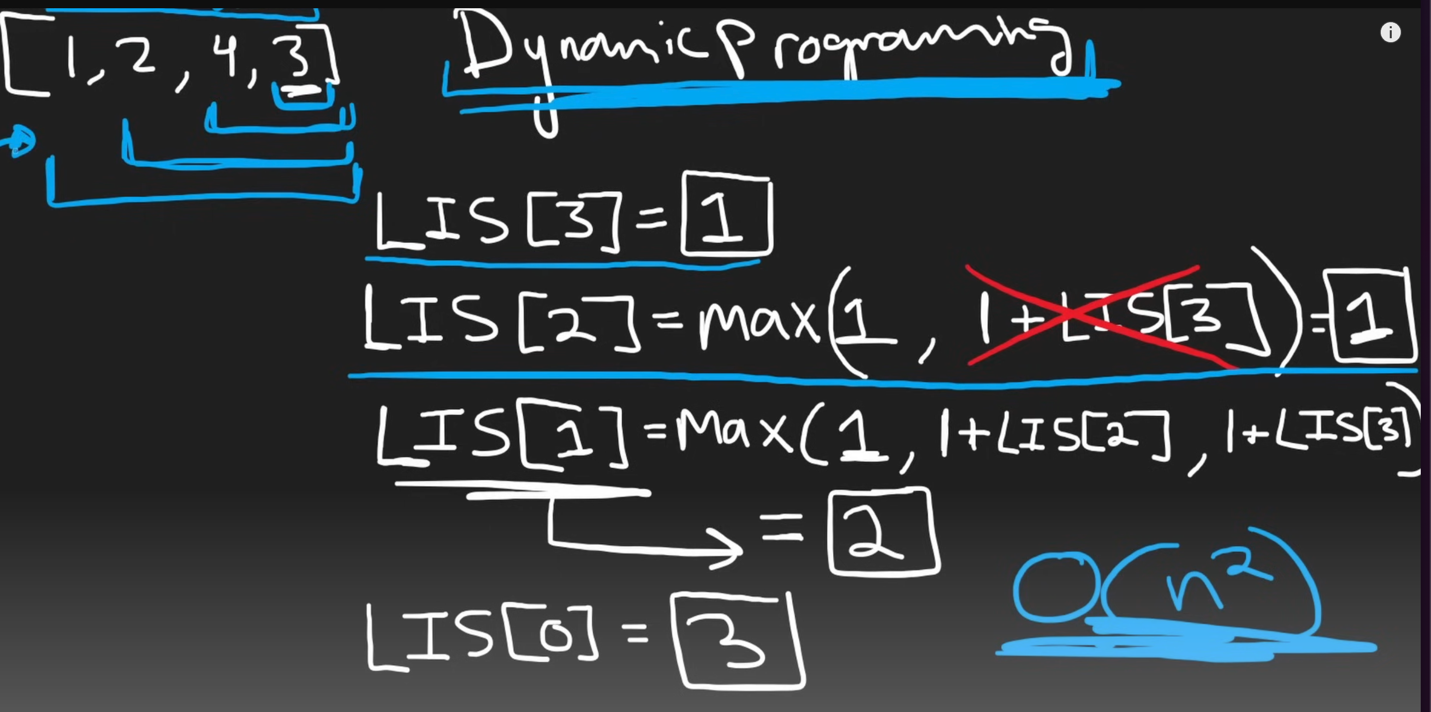 [1, 2, 4, 3]
Dynamic Programing
LIS[3] = 1
LIS[2] = max(1, 1 + LIS[3]) = 1
LIS[1] = Max(1, 1+LIS[2], 1+LIS[3])
= 2
O(n²)
LIS[0] = 3